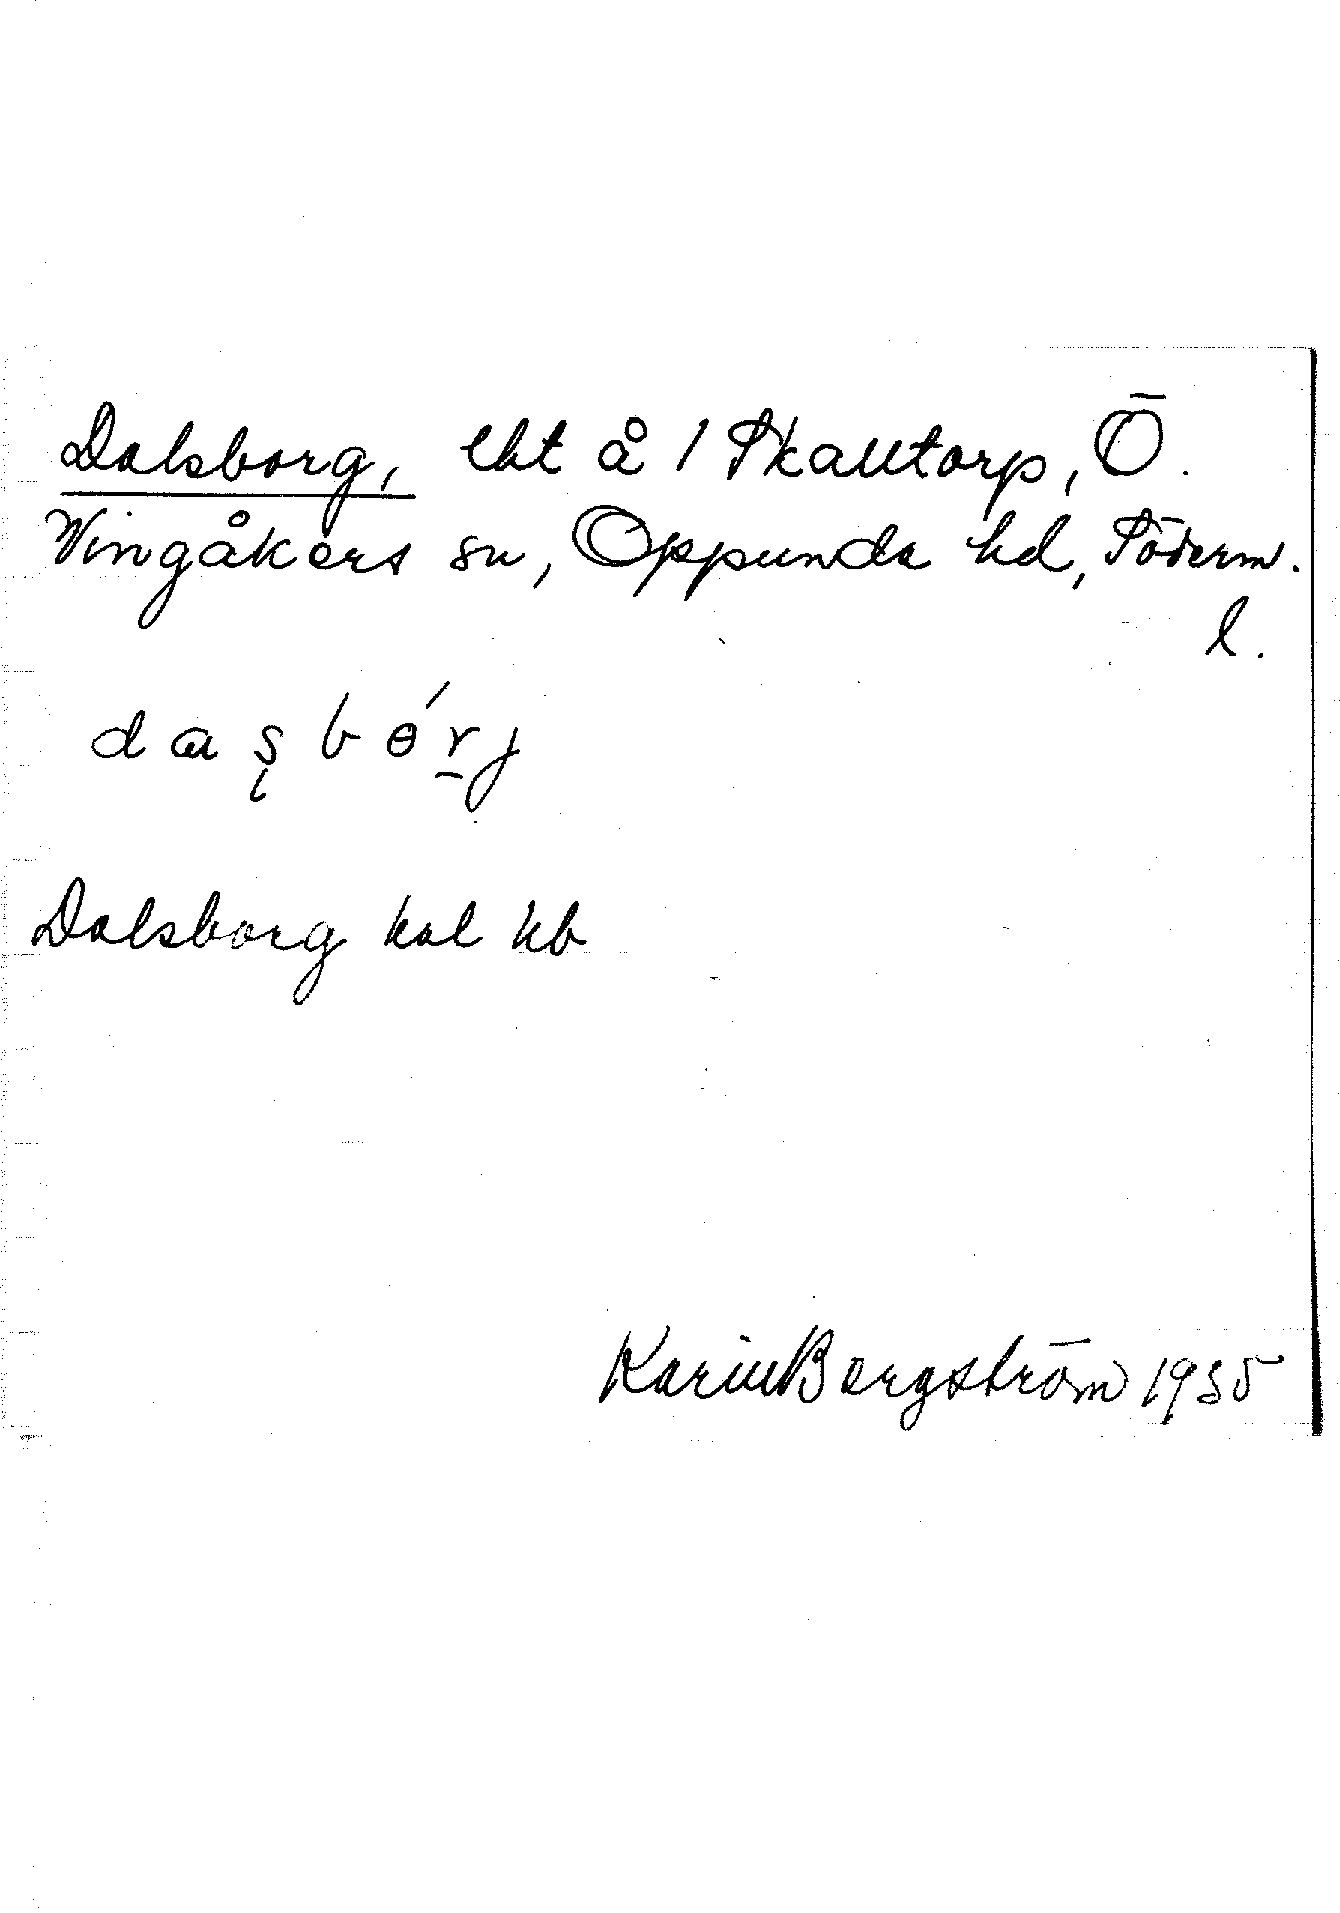 Dalsborg, lht å 1 Skalltorp, Ö.
Vingåkers sn, Oppunda hd, Söderm.
l.
daʂbɵ́r̠j
Dalsborg hal kb
Karin Bergström 1935